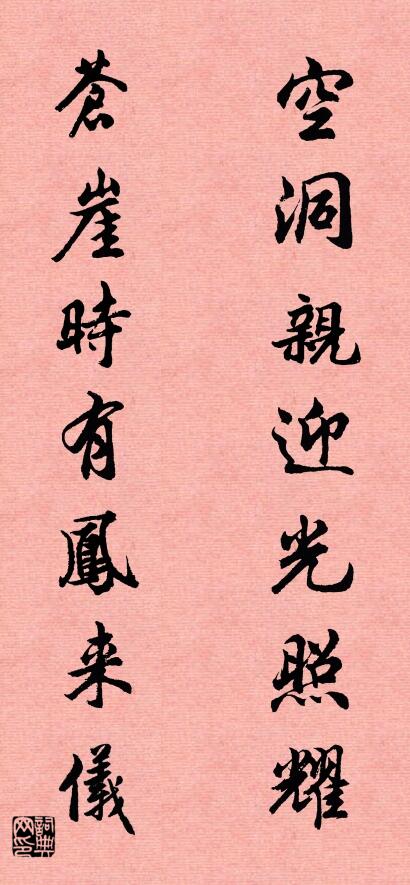 空洞親迎光照耀
蒼崖時有鳳来儀
詞典网印